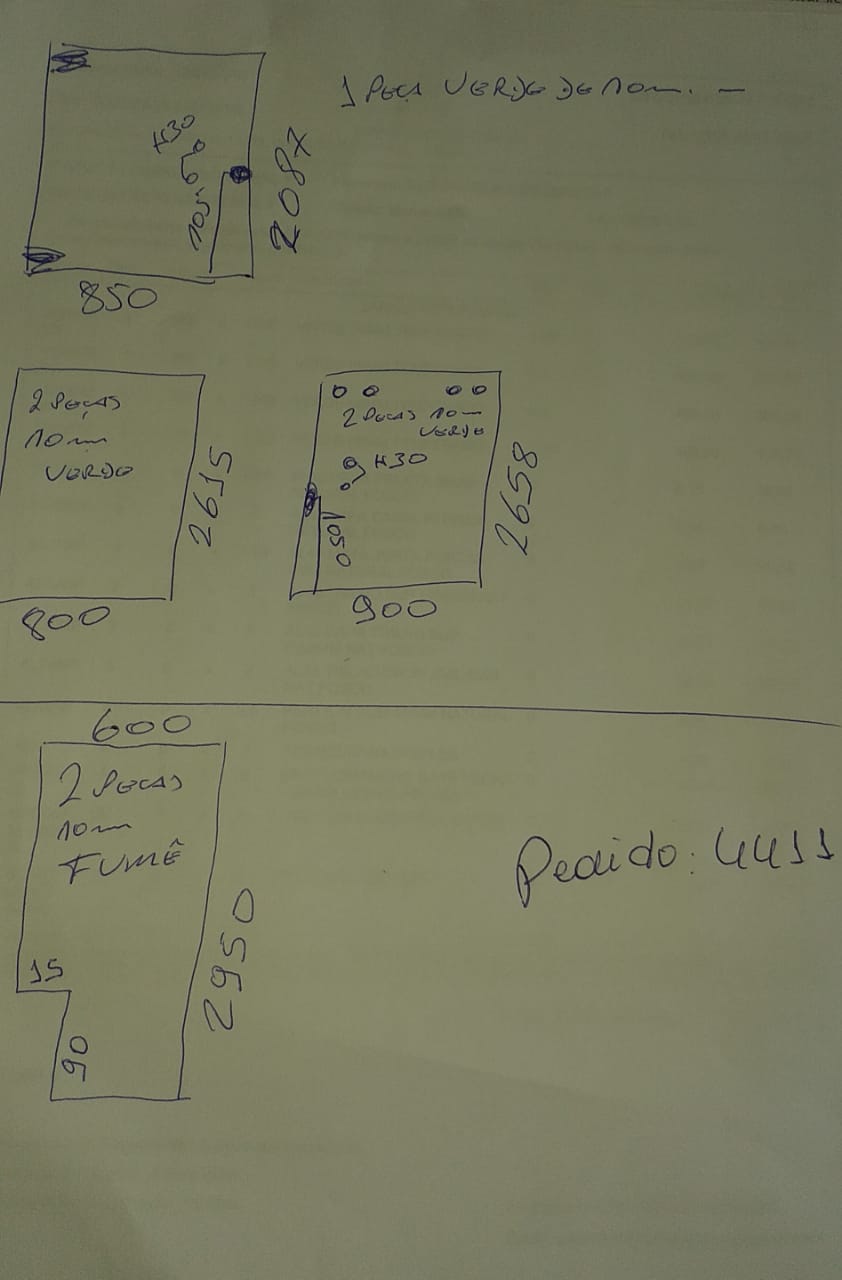 1 PEÇA VERDE DE 10m. -
H30
105.
2087
850
2 PEÇAS
10mm
VERDE
2615
800
2 PECAS 10m
VERDE
H30
1050
2658
900
600
2 PECAS
10m
FUMÊ
15
90
2950
Pedido: 4411